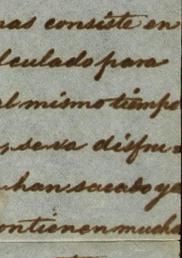 nas consiste en
lculado para
al mismo tiempo
, se va disfru-
han sacado ya
ontienen mucha